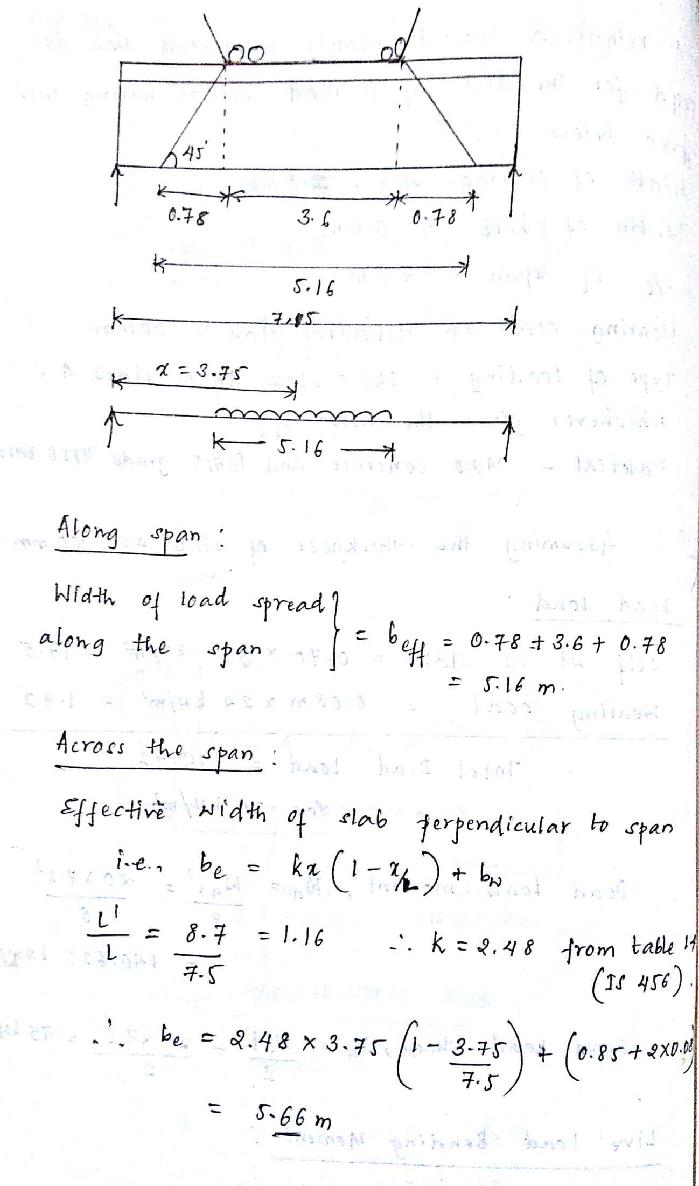 45°
0.78 3.6 0.78
5.16
x = 3.75
5.16
Along span :
Width of load spread
along the span } = beff = 0.78 + 3.6 + 0.78
= 5.16 m.
Across the span :
Effective width of slab perpendicular to span
i.e., be = kx (1 - x/L) + bw
L'/L = 8.7/7.5 = 1.16 ∴ k = 2.48 from table 14
(IS 456).
∴ be = 2.48 × 3.75 (1 - 3.75/7.5) + (0.85 + 2×0.08)
= 5.66 m